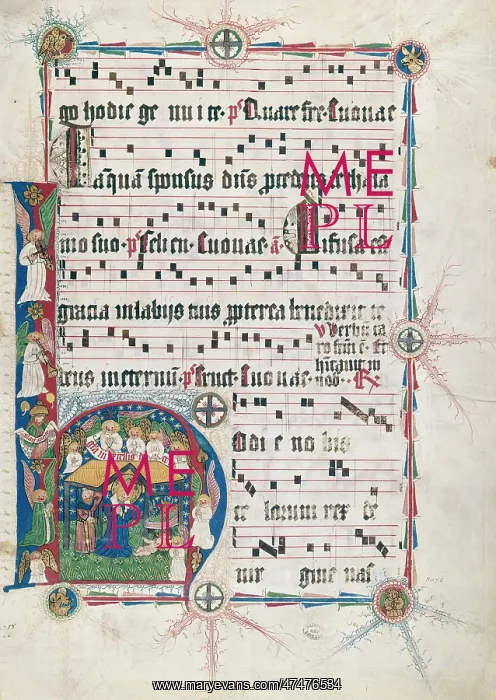 go hodie ge nu i te. ps Quare fre. Euouae
Tāquā sponsus dn̄s pcedens
mo suo. ps Celi en. Euouae. a. Diffusa est
gracia in labijs tuis ꝓpterea benedixit te
deus in eternū. ps Eruct. Euouae.
℣ Verbū ca
ro fm̄ ē. Et
habitauit in
nob. ℞
Hodi e no bis
ce lorum rex de
vir gine nas
ME
PL
ME
PL
www.maryevans.com/47476584